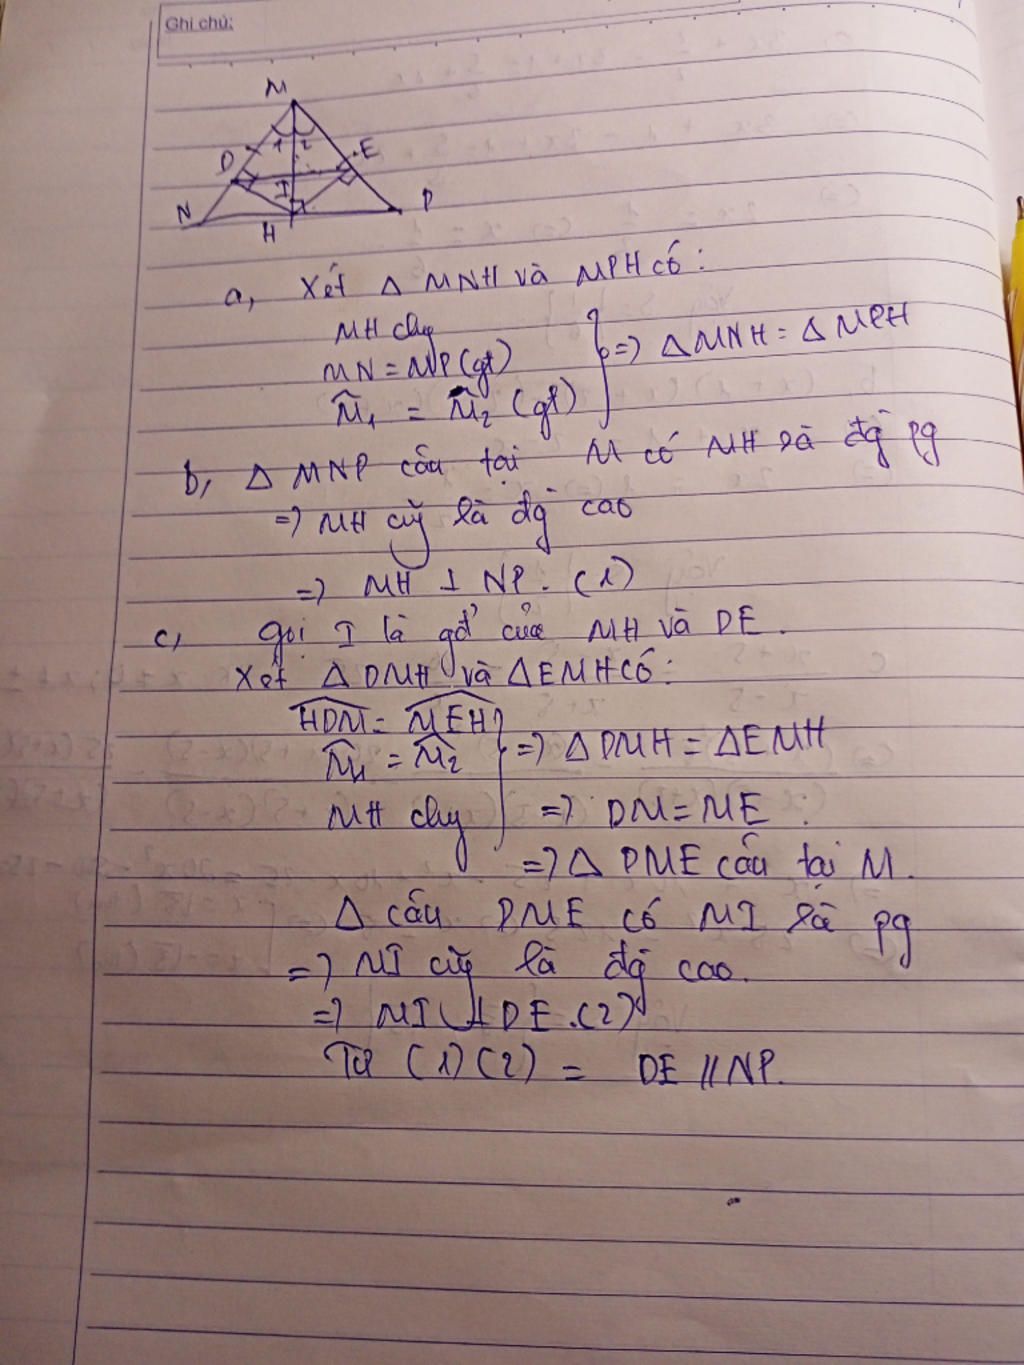 Ghi chú:
M
1 2
D E
I
N H P
a, Xét Δ MNH và MPH có:
MH chg
MN = MP (gt)
M̂₁ = M̂₂ (gt) } => Δ MNH = Δ MPH
b, Δ MNP cân tại M có MH là đg pg
=> MH cũg là đg cao
=> MH ⊥ NP. (1)
c, gọi I là gđ của MH và DE.
Xét Δ DMH và Δ EMH có:
HDM = MEH
M̂₁ = M̂₂ } => Δ DMH = Δ EMH
MH chg => DM = ME.
=> Δ DME cân tại M.
Δ cân DME có MI là pg
=> MI cũg là đg cao.
=> MI ⊥ DE. (2)
Từ (1) (2) = DE // NP.